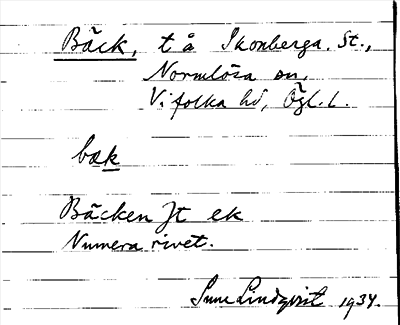 Bäck, t å Skonberga. St.,
Normlösa sn,
Vifolka hd, Ögl. L.
bæk
Bäcken Jt ek
Numera rivet.
Sune Lindqvist 1934.